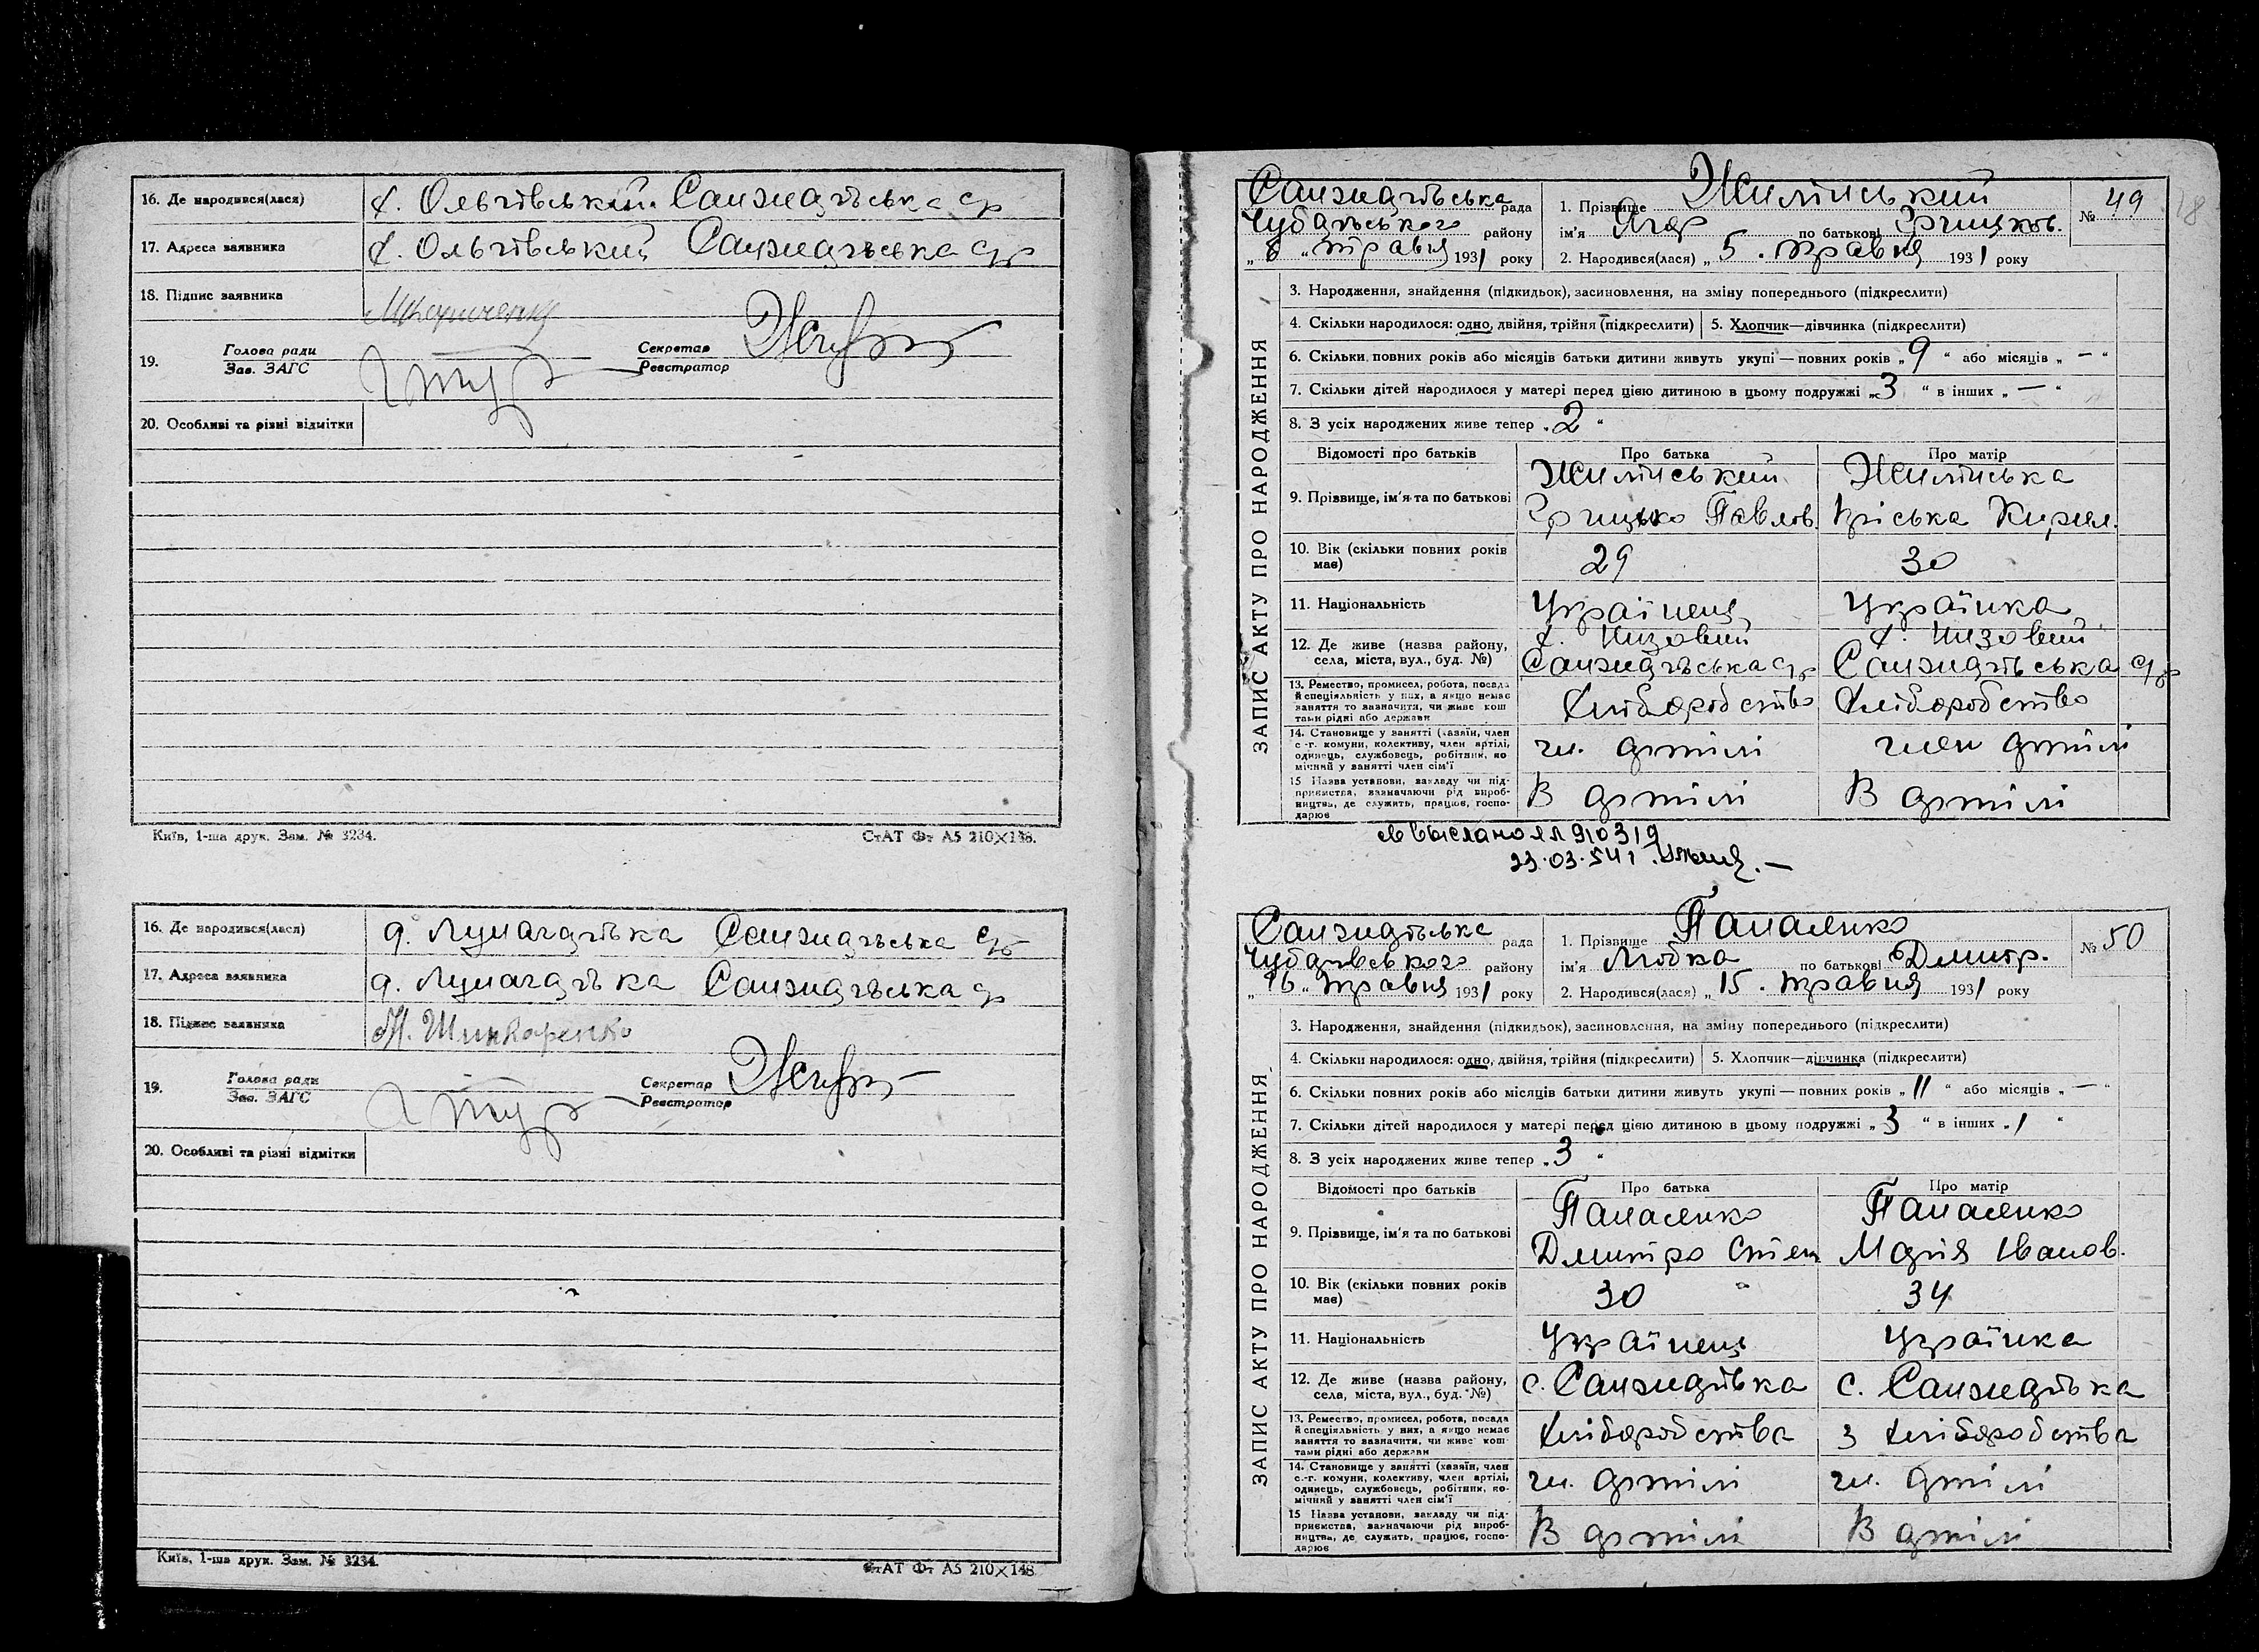 16. Де народився(лася) х. Ольгівський Санжарівська с/р
17. Адреса заявника х. Ольгівський Санжарівська с/р
18. Підпис заявника
19. Голова ради
Зав. ЗАГС
Секретар
Реєстратор
20. Особливі та різні відмітки
Київ, 1-ша друк. Зам. № 3234. СтАТ Фт А5 210×148.
16. Де народився(лася)
17. Адреса заявника
18. Підпис заявника Н. Шинкаренко
19. Голова ради
Зав. ЗАГС
Секретар
Реєстратор
20. Особливі та різні відмітки
Київ, 1-ша друк. Зам. № 3234. СтАТ Фт А5 210×148.
ЗАПИС АКТУ ПРО НАРОДЖЕННЯ
Санжарівська рада
Чубарівського району
„8„ травня 1931 року
1. Прізвище Жилінський
ім'я по батькові Грицьков.
2. Народився(лася) „5. травня 1931 року
№ 49
18
3. Народження, знайдення (підкидьок), засиновлення, на зміну попереднього (підкреслити)
4. Скільки народилося: одно, двійня, трійня (підкреслити) 5. Хлопчик—дівчинка (підкреслити)
6. Скільки повних років або місяців батьки дитини живуть укупі — повних років „9“ або місяців „—“
7. Скільки дітей народилося у матері перед цією дитиною в цьому подружжі „3“ в інших „—“
8. З усіх народжених живе тепер „2“
Відомості про батьків Про батька Про матір
9. Прізвище, ім'я та по батькові Жилінський Жилінська
Грицько Павлов. Пріська Кирил.
10. Вік (скільки повних років має) 29 30
11. Національність Українець Українка
12. Де живе (назва району, села, міста, вул., буд. №) х. Низовий х. Низовий
Санжарівська с/р Санжарівська с/р
13. Ремество, промисел, робота, посада й спеціяльність у них, а якщо немає заняття то зазначити, чи живе коштами рідні або держави Хліборобство Хліборобство
14. Становище у занятті (хазяїн, член с.-г. комуни, колективу, член артілі, одинець, службовець, робітник, помічний у занятті член сім'ї чл. артілі член артілі
15 Назва установи, закладу чи підприємства, зазначаючи рід виробництва, де служить, працює, господарює В артілі В артілі
св выслано ЯЛ 910319
23.03.54 г.
Санжарівська рада
Чубарівського району
„16„ травня 1931 року
1. Прізвище Панасенко
ім'я Любка по батькові Дмитр.
2. Народився(лася) „15. травня 1931 року
№ 50
3. Народження, знайдення (підкидьок), засиновлення, на зміну попереднього (підкреслити)
4. Скільки народилося: одно, двійня, трійня (підкреслити) 5. Хлопчик—дівчинка (підкреслити)
6. Скільки повних років або місяців батьки дитини живуть укупі — повних років „11“ або місяців „—“
7. Скільки дітей народилося у матері перед цією дитиною в цьому подружжі „3“ в інших „1“
8. З усіх народжених живе тепер „3“
Відомості про батьків Про батька Про матір
9. Прізвище, ім'я та по батькові Панасенко Панасенко
Дмитро Степ Марія Іванов.
10. Вік (скільки повних років має) 30 34
11. Національність Українець Українка
12. Де живе (назва району, села, міста, вул., буд. №) с. Санжарівка с. Санжарівка
13. Ремество, промисел, робота, посада й спеціяльність у них, а якщо немає заняття то зазначити, чи живе коштами рідні або держави Хліборобства З хліборобства
14. Становище у занятті (хазяїн, член с.-г. комуни, колективу, член артілі, одинець, службовець, робітник, помічний у занятті член сім'ї чл. артілі чл. артілі
15 Назва установи, закладу чи підприємства, зазначаючи рід виробництва, де служить, працює, господарює В артілі В артілі
ЗАПИС АКТУ ПРО НАРОДЖЕННЯ